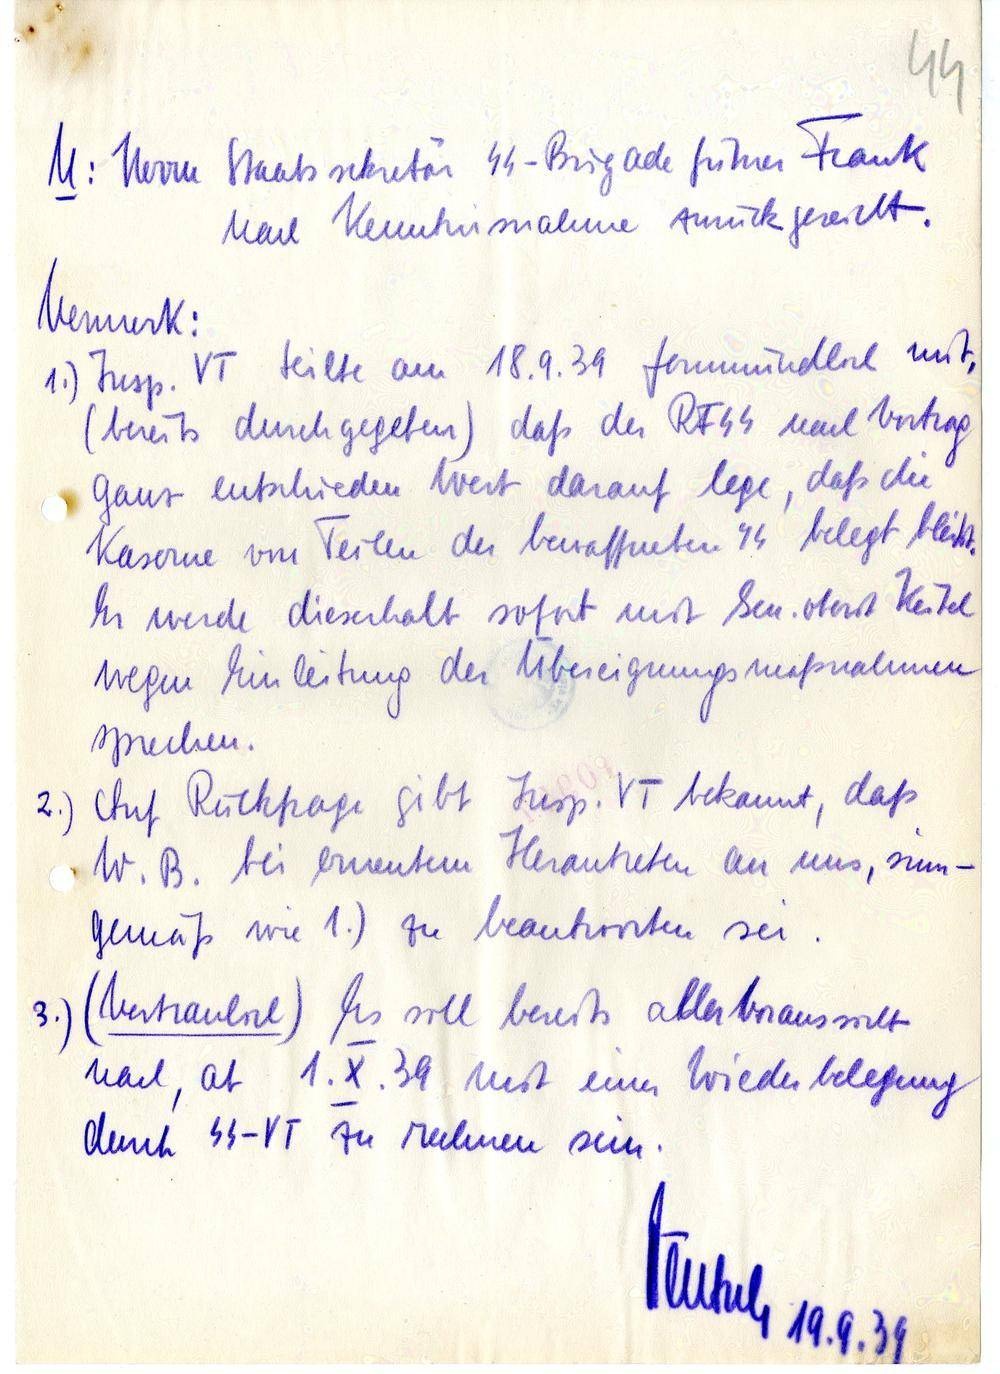 44
U: Herrn Staatssekretär SS-Brigadeführer Frank
nach Kenntnisnahme zurückgereicht.
Vermerk:
1.) Insp. VT teilte am 18.9.39 fernmündlich mit,
(bereits durchgegeben) daß der RFSS nach Vortrag
ganz entschieden Wert darauf lege, daß die
Kaserne von Teilen der bewaffneten SS belegt bleibt.
Er werde dieserhalb sofort mit Gen.oberst Keitel
wegen Einleitung der Übereignungsmaßnahmen
sprechen.
2.) Auf Rückfrage gibt Insp. VT bekannt, daß
W.B. bei erneutem Herantreten an uns, sinn-
gemäß wie 1.) zu beantworten sei.
3.) (Vertraulich) Es soll bereits aller Voraussicht
nach, ab 1.X.39 mit einer Wiederbelegung
durch SS-VT zu rechnen sein.
19.9.39